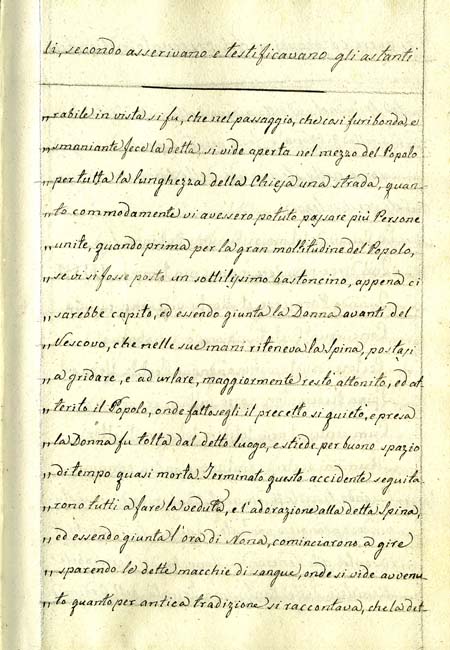 li, secondo asserivano e testificavano gli astanti
„rabile in vista si fu, che nel passaggio, che così furibonda, e
„smaniante fece la detta si vide aperta nel mezzo del Popolo
„per tutta la lunghezza della Chiesa una strada, quan-
„to commodamente vi avessero potuto passare più Persone
„unite, quando prima per la gran moltitudine del Popolo,
„se vi si fosse posto un sottilissimo bastoncino, appena ci
„sarebbe capito, ed essendo giunta la Donna avanti del
„Vescovo, che nelle sue mani riteneva la Spina, postasi
„a gridare, e ad urlare, maggiormente restò attonito, ed at-
„terito il Popolo, onde fattosegli il precetto si quietò, e presa
„la Donna fu tolta dal detto luogo, e stiede per buono spazio
„di tempo quasi morta. Terminato questo accidente seguita-
„rono tutti a fare la veduta, e l'adorazione alla detta Spina,
„ed essendo giunta l'ora di Nona, cominciarono a gire
„sparendo le dette macchie di sangue, onde si vide avvenu-
„to quanto per antica tradizione si raccontava, che la det-